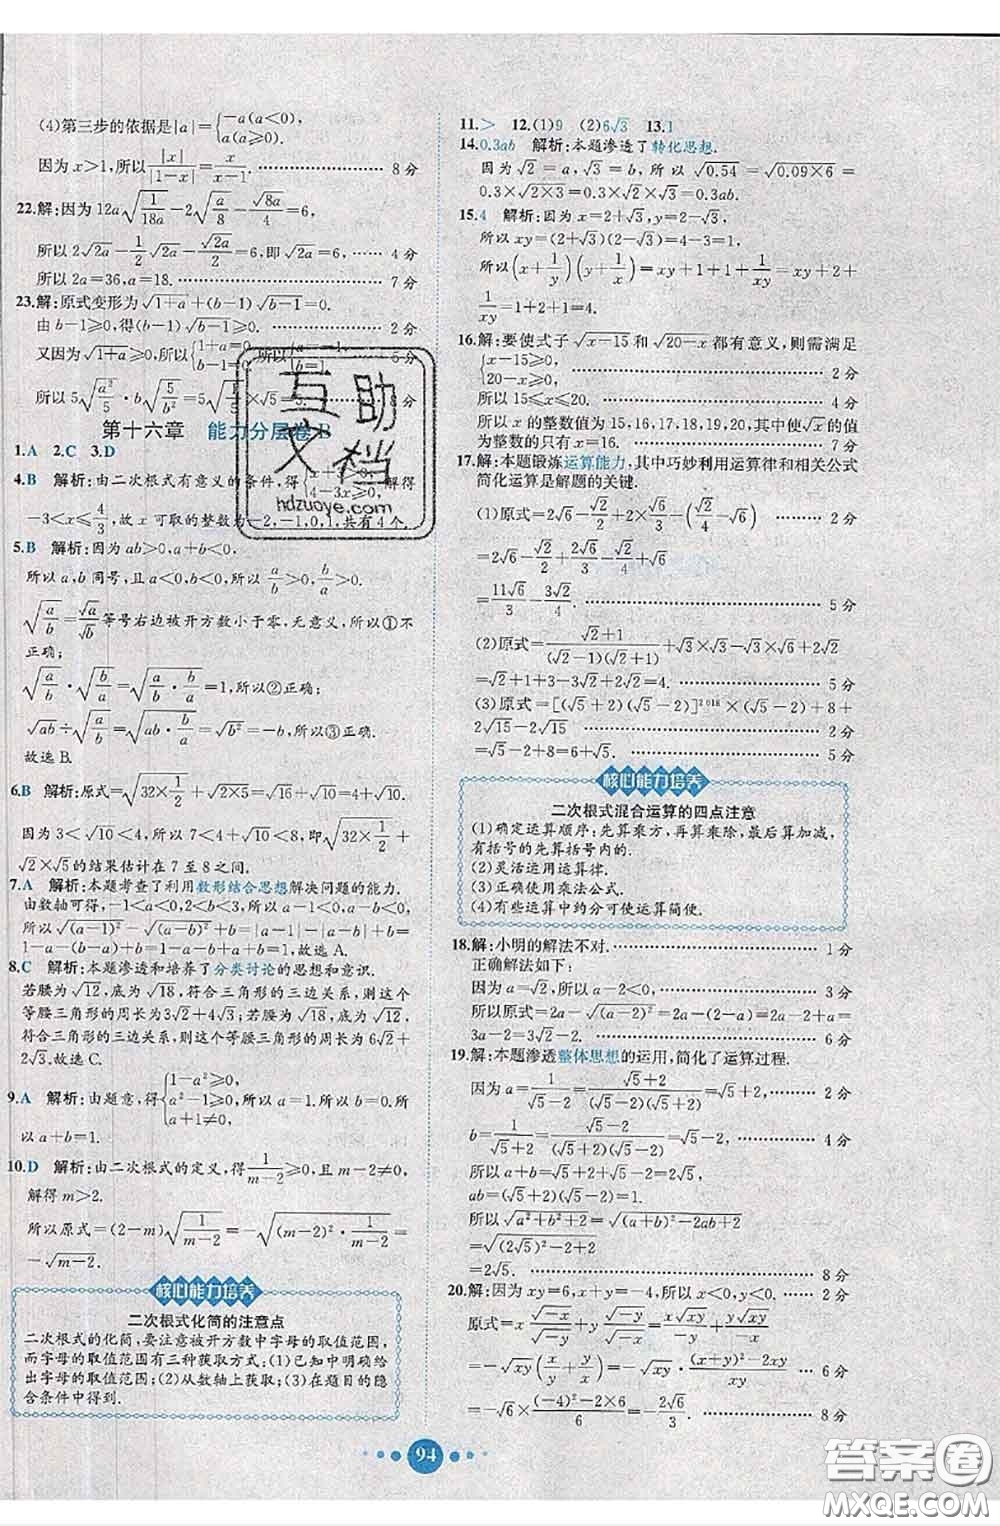 (4)第三步的依据是|a|={-a(a<0), a(a≥0).
因为x>1,所以|x|/|1-x|=x/(x-1). 8分
22.解:因为12a√(1/(18a))-2√(a/8)-√(8a)/4=6,
所以2√(2a)-1/2√(2a)-√(2a)/2=6,即√(2a)=6, 4分
所以2a=36,a=18. 7分
23.解:原式变形为√(1+a)+(b-1)√(b-1)=0.
由b-1≥0,得(b-1)√(b-1)≥0. 2分
又因为√(1+a)≥0,所以{1+a=0, b-1=0,所以 5分
所以5√(a²/5)·b√(5/b²)
第十六章 能力分层卷B
1.A 2.C 3.D
4.B 解析:由二次根式有意义的条件,得{x+3>0, 4-3x≥0, 解得
-3<x≤4/3,故x可取的整数为-2,-1,0,1,共有4个.
5.B 解析:因为ab>0,a+b<0,
所以a,b同号,且a<0,b<0,所以a/b>0,b/a>0.
√(a/b)=√a/√b等号右边被开方数小于零,无意义,所以①不
正确;
√(a/b)·√(b/a)=√(a/b·b/a)=√1=1,所以②正确;
√(ab)÷√(a/b)=√(ab·b/a)=√(b²)=-b,所以③正确.
故选B.
6.B 解析:原式=√(32×1/2)+√(2×5)=√16+√10=4+√10.
因为3<√10<4,所以7<4+√10<8,即√(32×1/2)+
√2×√5的结果估计在7至8之间.
7.A 解析:本题考查了利用数形结合思想解决问题的能力.
由数轴可得,-1<a<0,2<b<3,所以a-1<0,a-b<0,
所以√((a-1)²)-√((a-b)²)+b=|a-1|-|a-b|+b=
1-a-(b-a)+b=1-a-b+a+b=1,故选A.
8.C 解析:本题渗透和培养了分类讨论的思想和意识.
若腰为√12,底为√18,符合三角形的三边关系,则这个
等腰三角形的周长为3√2+4√3;若腰为√18,底为√12,
符合三角形的三边关系,则这个等腰三角形的周长为6√2+
2√3.故选C.
9.A 解析:由题意,得{1-a²≥0, a²-1≥0, a+1≠0, 所以a=1,则b=0,所
以a+b=1.
10.D 解析:由二次根式的定义,得1/(m-2)≥0,且m-2≠0,
解得m>2.
所以原式=(2-m)√(1/(m-2))=-√((m-2)²·1/(m-2))=
-√(m-2).
核心能力培养
二次根式化简的注意点
二次根式的化简,要注意被开方数中字母的取值范围,
而字母的取值范围有三种获取方式:(1)已知中明确给
出字母的取值范围;(2)从数轴上获取;(3)在题目的隐
含条件中得到.
11.> 12.(1)9 (2)6√3 13.1
14.0.3ab 解析:本题渗透了转化思想.
因为√2=a,√3=b,所以√0.54=√(0.09×6)=
0.3×√(2×3)=0.3×√2×√3=0.3ab.
15.4 解析:因为x=2+√3,y=2-√3,
所以xy=(2+√3)(2-√3)=4-3=1,
所以(x+1/y)(y+1/x)=xy+1+1+1/xy=xy+2+
1/xy=1+2+1=4.
16.解:要使式子√(x-15)和√(20-x)都有意义,则需满足
{x-15≥0, 20-x≥0. 2分
所以15≤x≤20. 4分
所以x的整数值为15,16,17,18,19,20,其中整数值为
偶数的只有x=16. 7分
17.解:本题锻炼运算能力,其中巧妙利用运算律和相关公式
简化运算是解题的关键.
(1)原式=2√6-√2/2+2×√6/3-(√2/4-√6) 2分
=2√6-√2/2+2√6/3-√2/4+√6
=11√6/3-3√2/4. 5分
(2)原式=(√2+1)/((√2-1)(√2+1))+√3×√3-√3×√6+2√2
=√2+1+3-3√2+2√2=4. 5分
(3)原式=[(√5+2)(√5-2)]²⁰¹⁸×(√5-2)+8+
2√15-2√15 2分
=√5-2+8=6+√5. 5分
核心能力培养
二次根式混合运算的四点注意
(1)确定运算顺序:先算乘方,再算乘除,最后算加减,
有括号的先算括号内的.
(2)灵活运用运算律.
(3)正确使用乘法公式.
(4)有些运算中约分可使运算简便.
18.解:小明的解法不对. 1分
正确解法如下:
因为a=√2,所以a-2<0. 3分
所以原式=2a-√((a-2)²)=2a-(2-a)=2a-2+a=
3a-2=3√2-2. 6分
19.解:本题渗透整体思想的运用,简化了运算过程.
因为a=1/(√5-2)=(√5+2)/((√5-2)(√5+2))=√5+2, 2分
b=1/(√5+2)=(√5-2)/((√5+2)(√5-2))=√5-2, 4分
所以a+b=√5+2+√5-2=2√5.
ab=(√5+2)(√5-2)=1.
所以√(a²+b²+2)=√((a+b)²-2ab+2)
=√((2√5)²-2×1+2)=√20
=2√5. 8分
20.解:因为xy=6,x+y=-4,所以x<0,y<0.
原式=x√(-y)/√(-x)+y√(-x)/√(-y)=x√(xy)/(-x)+y√(xy)/(-y) 4分
=-√(xy)(x/y+y/x)=-√(xy)·((x+y)²-2xy)/xy 6分
=-√6×((-4)²-2×6)/6=-2√6/3. 8分
94
互助
文档
hdzuoye.com
答案圈
MXQE.COM